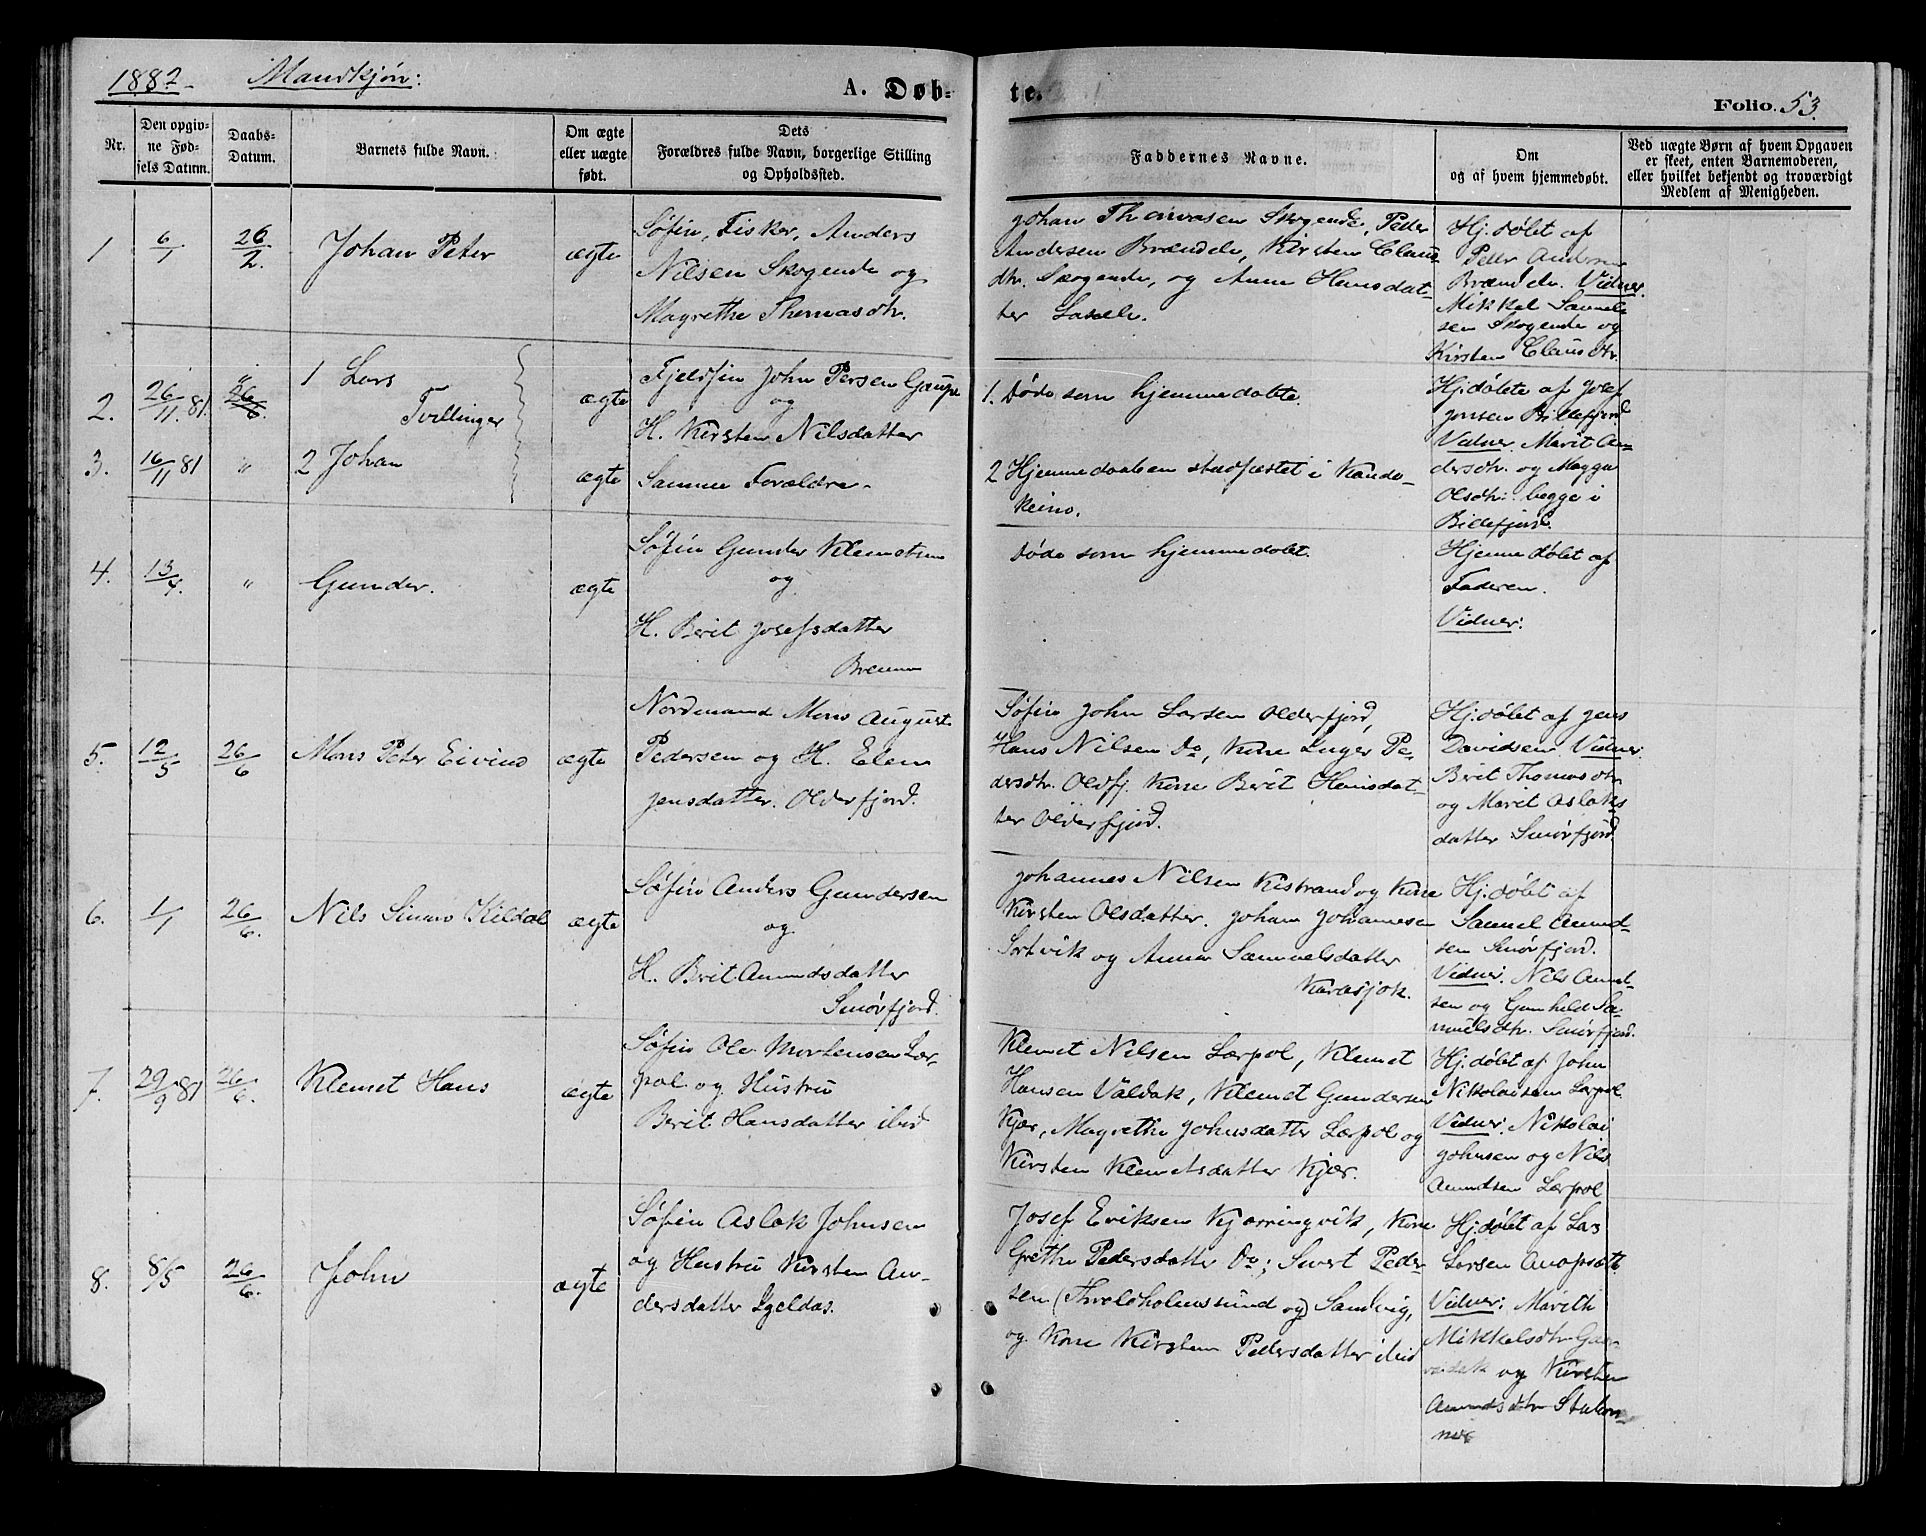 1882. Mandkjøn:
A. Døb-
te.
Folio. 53.
Nr.
Den opgiv-
ne Fød-
sels Datum.
Daabs-
Datum.
Barnets fulde Navn.
Om ægte
eller uægte
født.
Dets
Forældres fulde Navn, borgerlige Stilling
og Opholdssted.
Faddernes Navne.
Om
og af hvem hjemmedøbt.
Ved uægte Børn af hvem Opgaven
er skeet, enten Barnemoderen,
eller hvilket bekjendt og troværdigt
Medlem af Menigheden.
1
6/1
26/2.
Johan Peter
ægte
Søfin, Fisker, Anders
Nilsen Skogende og
Magrethe Thomasdtr.
Johan Thomasen Skogende, Peder
Andersen Brændelv, Kirsten Claus-
dtr. Skogende, og Anne Hansdat-
ter Laxelv.
Hj.døbt af
Peder Andersen
Brændelv. Vidner.
Mikkel Samuel-
sen Skogende og
Kirsten Clausdtr.
2.
26/11. 81.
"
26/6.
1 Lars
Tvillinger
ægte
Fjeldfin John Persen Gaup
og
H. Kirsten Nilsdatter
1. Døde som hjemmedøbte.
Hj.døbte af Josef
Jonsen Billefjord
Vidner. Marit An-
dersdtr. og Magga
Olsdtr: begge i
Billefjord.
3.
16/11 81
"
2 Johan
ægte
Samme Forældre.
2 Hjemmedaaben stadfæstet i Kauto-
keino.
4.
13/4.
"
Gunder.
ægte
Søfin Gunder Klemetsen
og
H. Berit Josefsdatter
Brenna
Døde som hjemmedøbt.
Hjemmedøbt af
Faderen.
Vidner:
5.
12/5
26/6
Mons Peter Eivind
ægte
Nordmand Mons August
Pedersen og H. Elen
Jensdatter. Olderfjord.
Søfin John Larsen Olderfjord,
Hans Nilsen Do, Kone Inger Pe-
dersdtr. Oldfj. Kone Berit Hansdat-
ter Olderfjord.
Hj.døbt af Jens
Davidsen. Vidner.
Berit Thomasdtr
og Marit Aslaks
datter Smørfjord.
6.
1/1
26/6.
Nils Simon Kildal
ægte
Søfin Anders Gundersen
og
H. Brit Amundsdatter
Smørfjord.
Johannes Nilsen Kistrand og Kone
Kirsten Olsdatter. Johan Johannesen
Sortvik og Anna Samuelsdatter
Karasjok.
Hj.døbt af
Samuel Amund-
sen Smørfjord.
Vidner. Nils Amund-
sen og Gunhild Sa-
muelsdtr. Smørfjord.
7.
29/9 81
26/6.
Klemet Hans
ægte
Søfin Ole Mortensen Lær-
pol og Hustru
Berit Hansdatter ibid
Klemet Nilsen Lærpol, Klemet
Hansen Valdak, Klemet Gundersen
Kjær, Magrethe Johnsdatter Lærpol og
Kirsten Klemetsdatter Kjær.
Hj.døbt af John
Nikolaisen Lærpol
Vidner. Nikolai
Johnsen og Nils
Amundsen Lærpol
8.
8/5
26/6.
John
ægte
Søfin Aslak Johnsen
og Hustru Kirsten An-
dersdatter Igeldas.
Josef Eriksen Kjærringvik, Kone
Grethe Pedersdatter Do; Sivert Peder-
sen (Thveldholmssund og) Sandvig,
og Kone Kirsten Pedersdatter ibid
Hj.døbt af Lars
Larsen
Vidner: Marith
Mikkelsdtr
og Kirsten
Amundsdtr